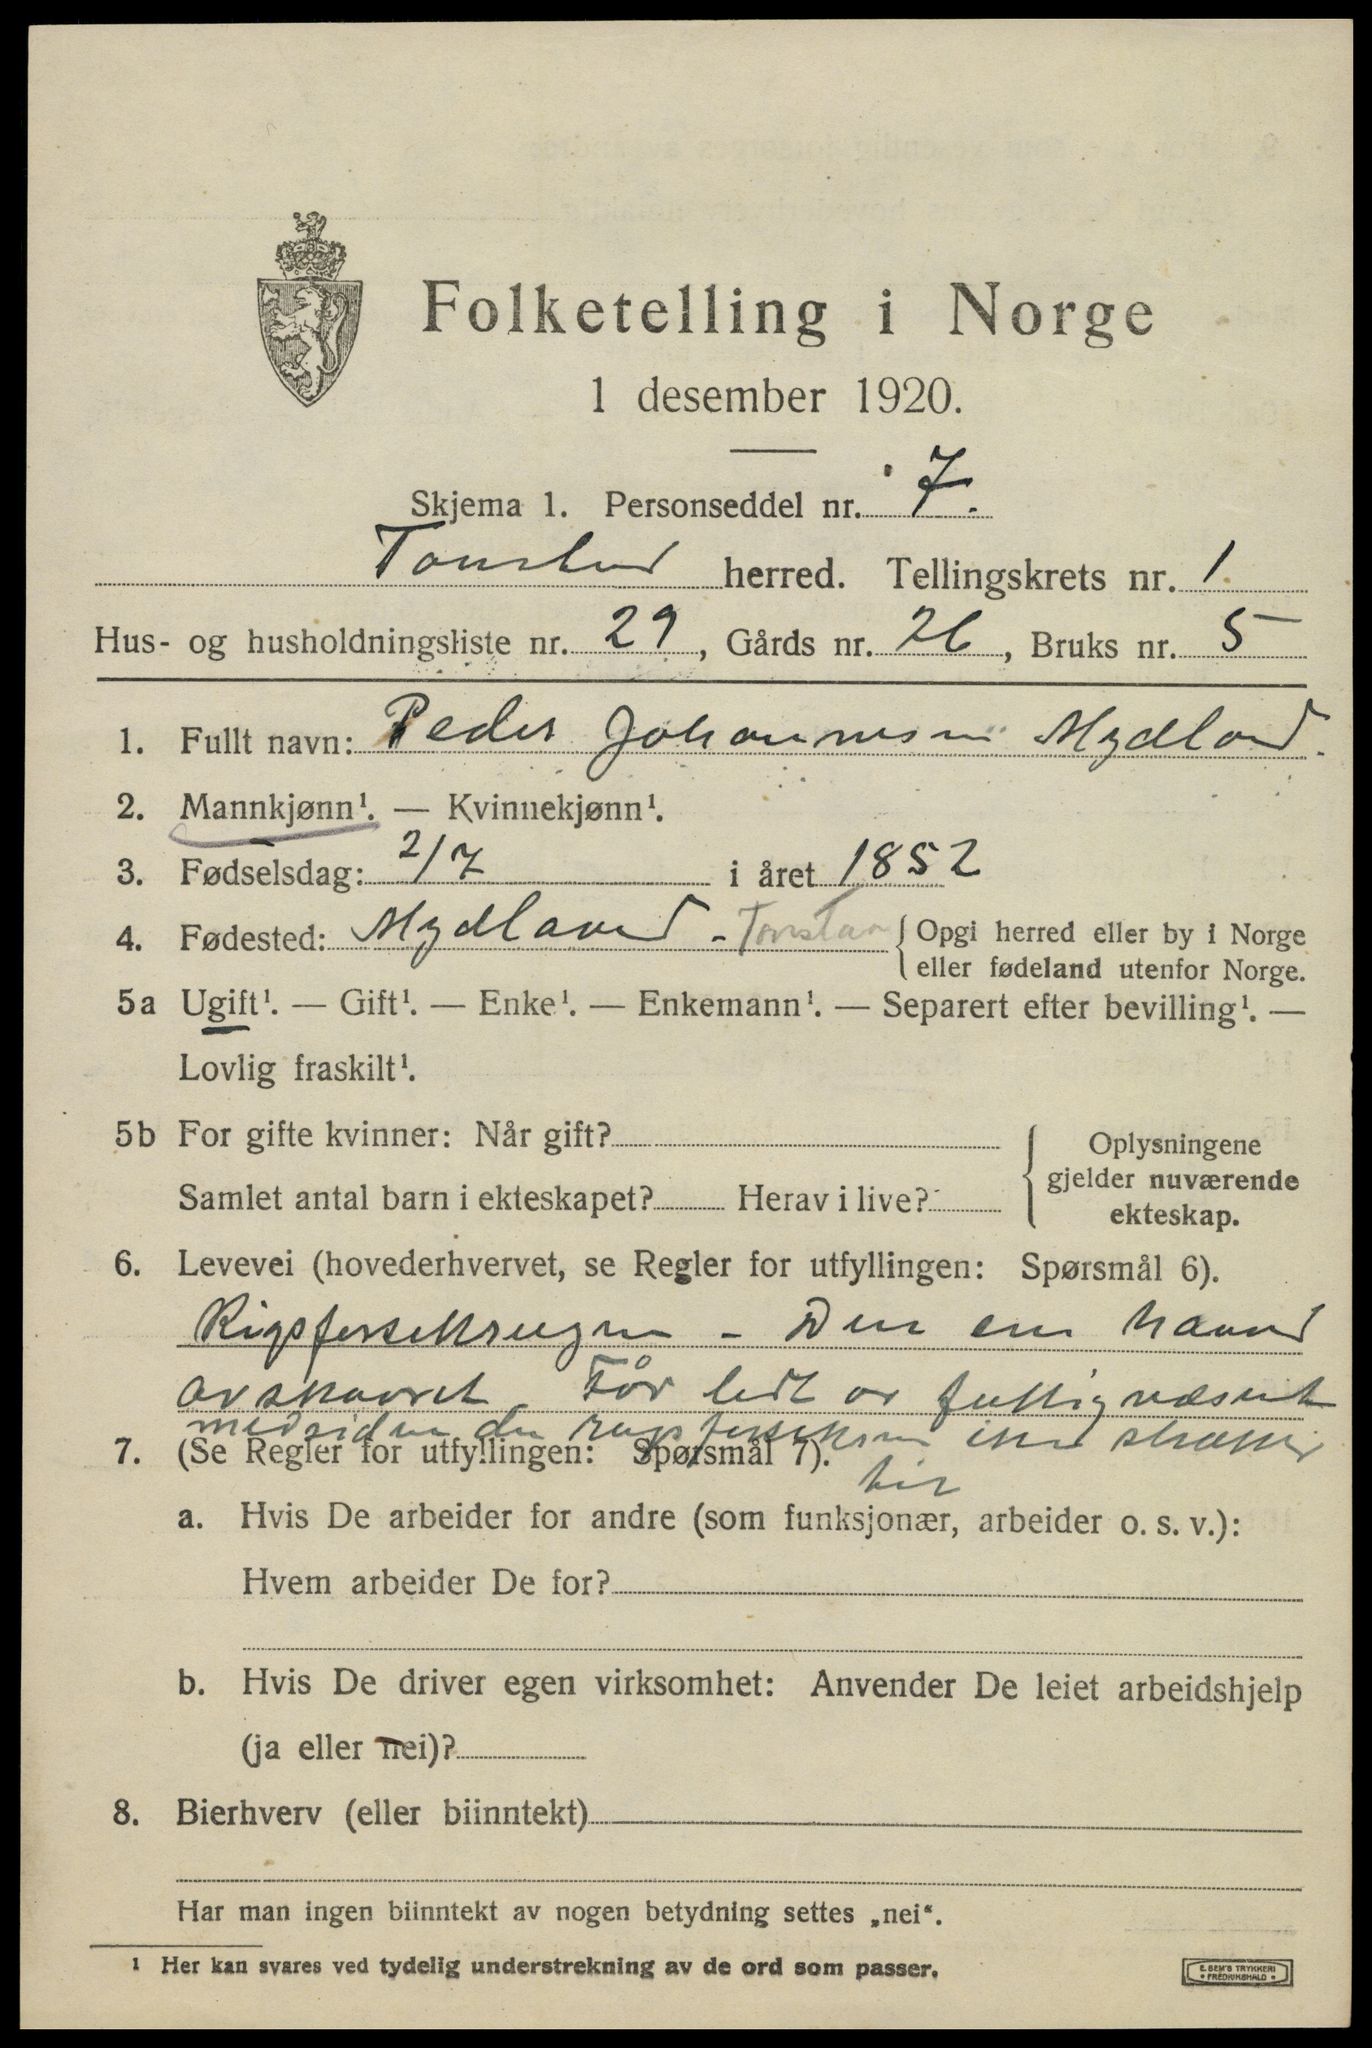 Folketelling i Norge
1 desember 1920.
Skjema 1. Personseddel nr. 7.
Tonstad herred. Tellingskrets nr. 1
Hus- og husholdningsliste nr. 29, Gårds nr. 26, Bruks nr. 5
1. Fullt navn: Peder Johannesen Mydland.
2. Mannkjønn¹. — Kvinnekjønn¹.
3. Fødselsdag: 2/7 i året 1852
4. Fødested: Mydland - Tonstad { Opgi herred eller by i Norge
eller fødeland utenfor Norge.
5a Ugift¹. — Gift¹. — Enke¹. — Enkemann¹. — Separert efter bevilling¹. —
Lovlig fraskilt¹.
5b For gifte kvinner: Når gift?
Oplysningene
gjelder nuværende
ekteskap.
Samlet antal barn i ekteskapet? Herav i live?
6. Levevei (hovederhvervet, se Regler for utfyllingen: Spørsmål 6).
- Den ene haand
avskaaret Får av fattigvæsenet
7. (Se Regler for utfyllingen: Spørsmål 7).
a. Hvis De arbeider for andre (som funksjonær, arbeider o. s. v.):
Hvem arbeider De for?
b. Hvis De driver egen virksomhet: Anvender De leiet arbeidshjelp
(ja eller nei)?
8. Bierhverv (eller biinntekt)
Har man ingen biinntekt av nogen betydning settes „nei“.
¹ Her kan svares ved tydelig understrekning av de ord som passer.
E. SEM'S TRYKKERI
• FREDRIKSHALD •